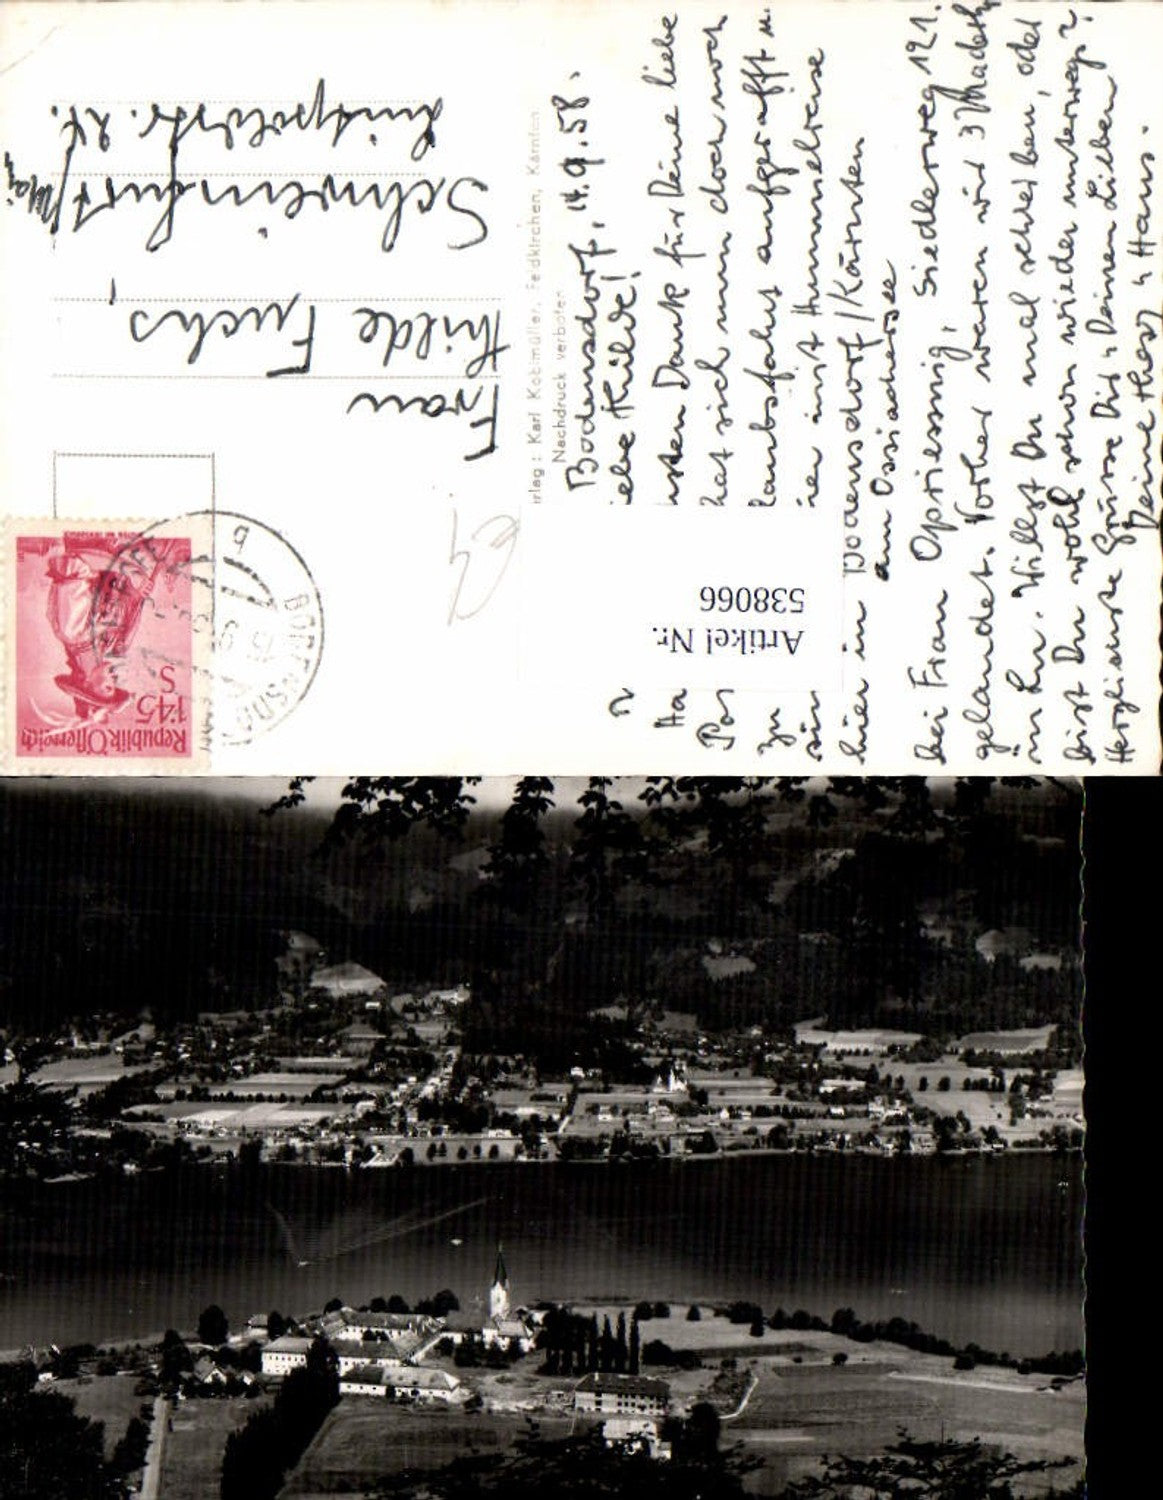 Bodensdorf, 14.9.58.
Liebe Hilde!
Dank für Deine liebe
hat sich nun doch noch
zu aufgerafft u.
sind mit Hummelreise
hier in Bodensdorf/Kärnten
am Ossiachersee
bei Frau Opriessnig, Siedlerweg 121.
gelandet. Vorher waren wir 3
in Willst Du mal schreiben, oder
bist Du wohl schon wieder unterwegs?
Herzlichste Grüsse Dir u Deinen Lieben
Deine u Hans.
Verlag: Karl Kobimüller, Feldkirchen, Kärnten
Nachdruck verboten
Frau
Hilde Fuchs,
Schweinfurt/Main
Luitpoldstr. 24.
Republik Österreich
1'45
S
BODENSDORF
b
Artikel Nr.
538066